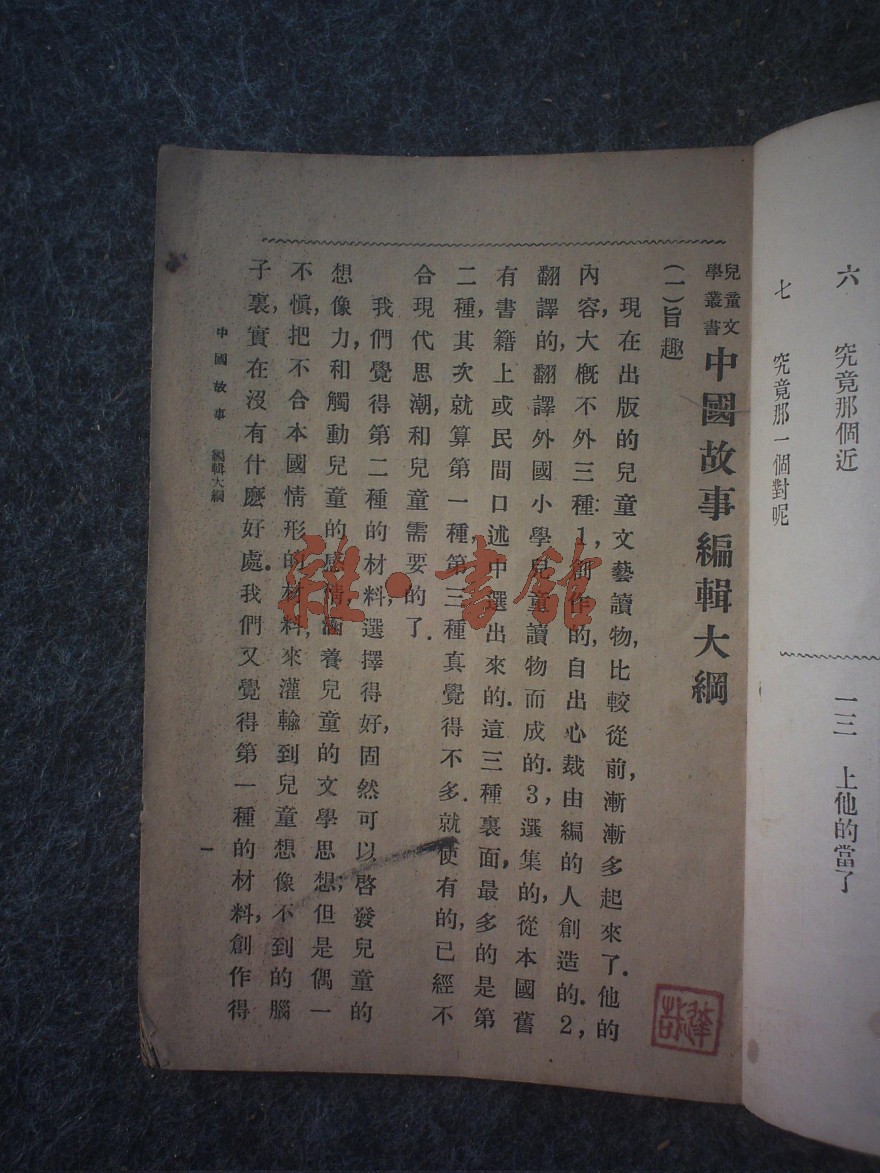 六　究竟那個近
七　究竟那一個對呢
一三　上他的當了
兒童文學叢書
中國故事編輯大綱
(一)旨趣
現在出版的兒童文藝讀物,比較從前,漸漸多起來了.他的
內容,大概不外三種:1,創作的,自出心裁由編的人創造的.2,
翻譯的,翻譯外國小學兒童讀物而成的.3,選集的,從本國舊
有書籍上或民間口述中選出來的.這三種裏面,最多的是第
二種,其次就算第一種,第三種真覺得不多.就使有的,已經不
合現代思潮,和兒童需要的了.
我們覺得第二種的材料,選擇得好,固然可以啓發兒童的
想像力,和觸動兒童的感情,涵養兒童的文學思想;但是偶一
不慎,把不合本國情形的材料,來灌輸到兒童想像不到的腦
子裏,實在沒有什麽好處.我們又覺得第一種的材料,創作得
中國故事　編輯大綱
一
雜·書館